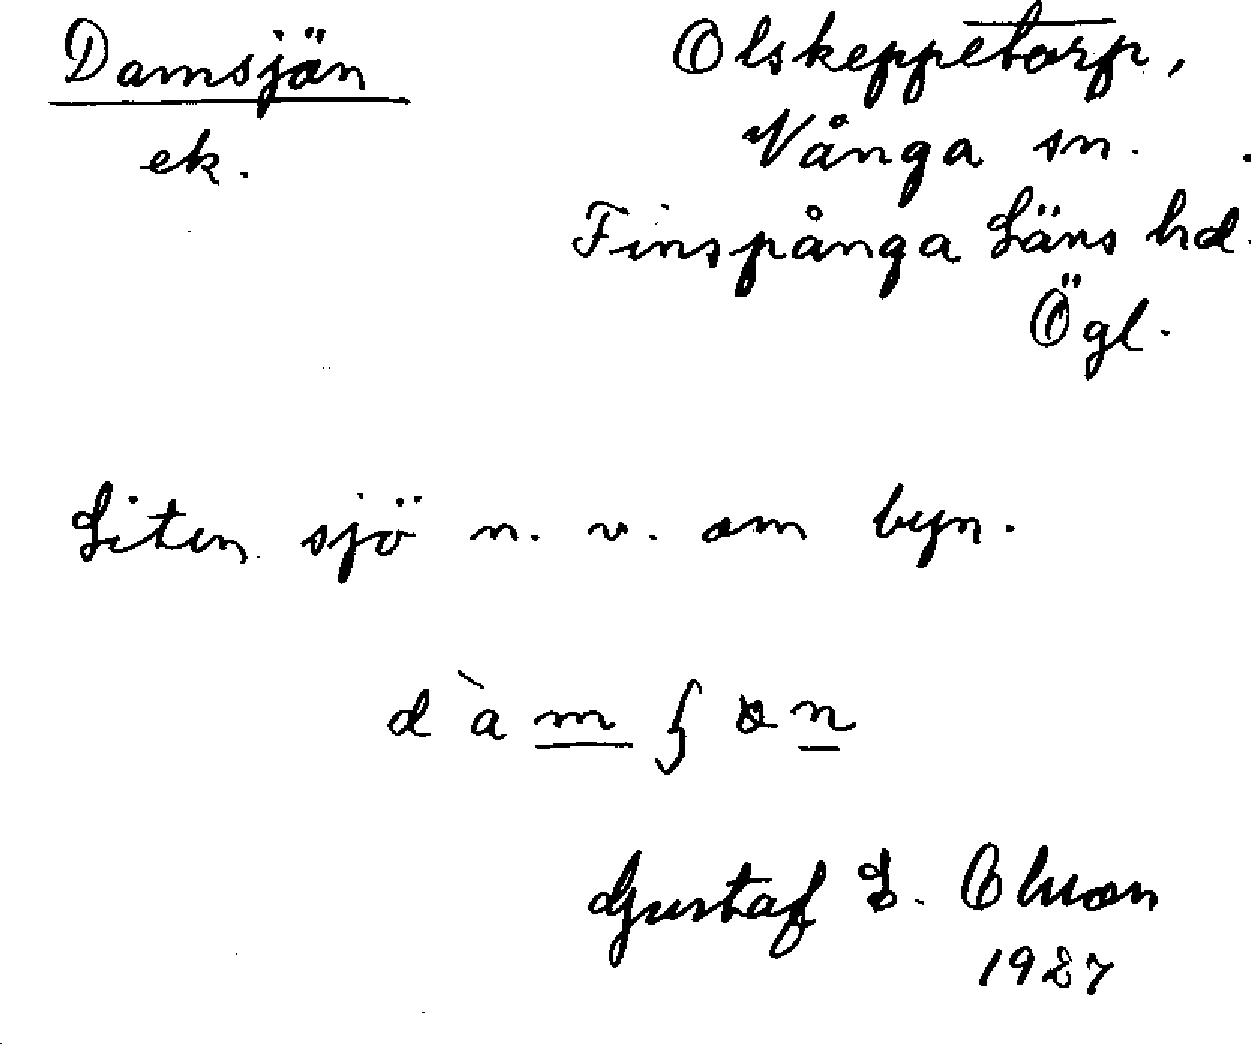 Damsjön
ek.
Olskeppetorp,
Vånga sn.
Finspånga Läns hd.
Ögl.
Liten sjö n. v. om byn.
Gustaf L.
1927